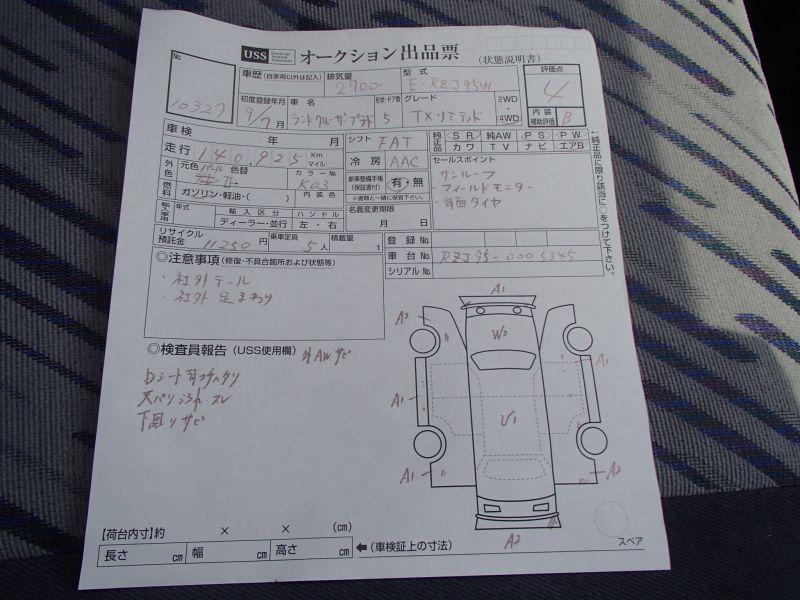 USS オークション出品票 (状態説明書)
No. 10327
車歴 (自家用以外は記入) 排気量 2700 型式 E-RZJ95W 評価点 4
初度登録年月 9/7月 車名 ランドクルーザープラド 形状・ドア数 5 グレード TXリミテッド 2WD・4WD 内装補助評価 B
車検 年 月
走行 140,925 Km マイル
シフト FAT
冷房 AAC
純正品 SR 純AW PS PW
カワ TV ナビ エアB
↑純正品に限り該当に○をつけて下さい。
外色 元色 パール 色替 カラーNo K03
燃料 ガソリン・軽油・( ) 内装色
新車整備手帳 (保証書付) 有・無
※書類と一緒に保管下さい。
セールスポイント
・サンルーフ
・フィールドモニター
・背面タイヤ
輸入車用 年式 輸入区分 ハンドル
ディーラー・並行 左・右
名義変更期限 月 日
リサイクル預託金 11250円 乗車定員 5人 積載量 t
登録No.
車台No. RZJ95-0005345
シリアルNo.
◎注意事項 (修復・不具合箇所および状態等)
・社外テール
・社外足まわり
◎検査員報告 (USS使用欄) 外AWサビ
天バリ スレ
下回りサビ
A1
A2
W2
A1
A1
U1
A1
A2
A2
スペア
【荷台内寸】約 × × (cm)
長さ cm 幅 cm 高さ cm ←(車検証上の寸法)